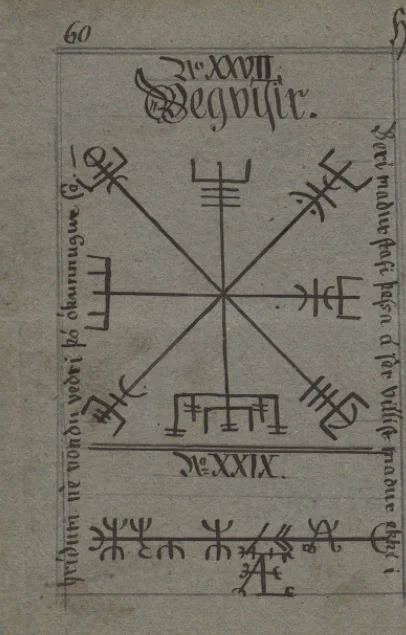 60
No XXVII.
Vegvísir.
Beri maður stafi þessa á sér villist maður ekki i
hríðum né vondu veðri þó ókunnugur sé.
No XXIX.